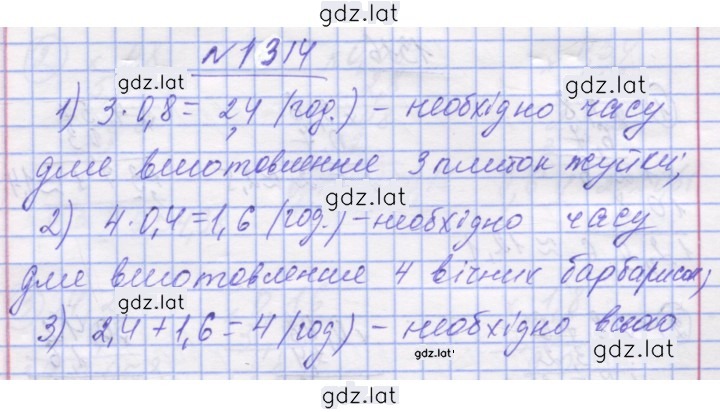 gdz.lat
№1314
gdz.lat gdz.lat
1) 3·0,8= 2,4 (год.) - необхідно часу
для виготовлення 3 плиток жуйки;
gdz.lat
2) 4·0,4=1,6 (год.) - необхідно часу
для виготовлення 4 вічних барбарисок;
gdz.lat gdz.lat
3) 2,4+1,6=4 (год) - необхідно всього
gdz.lat
gdz.lat